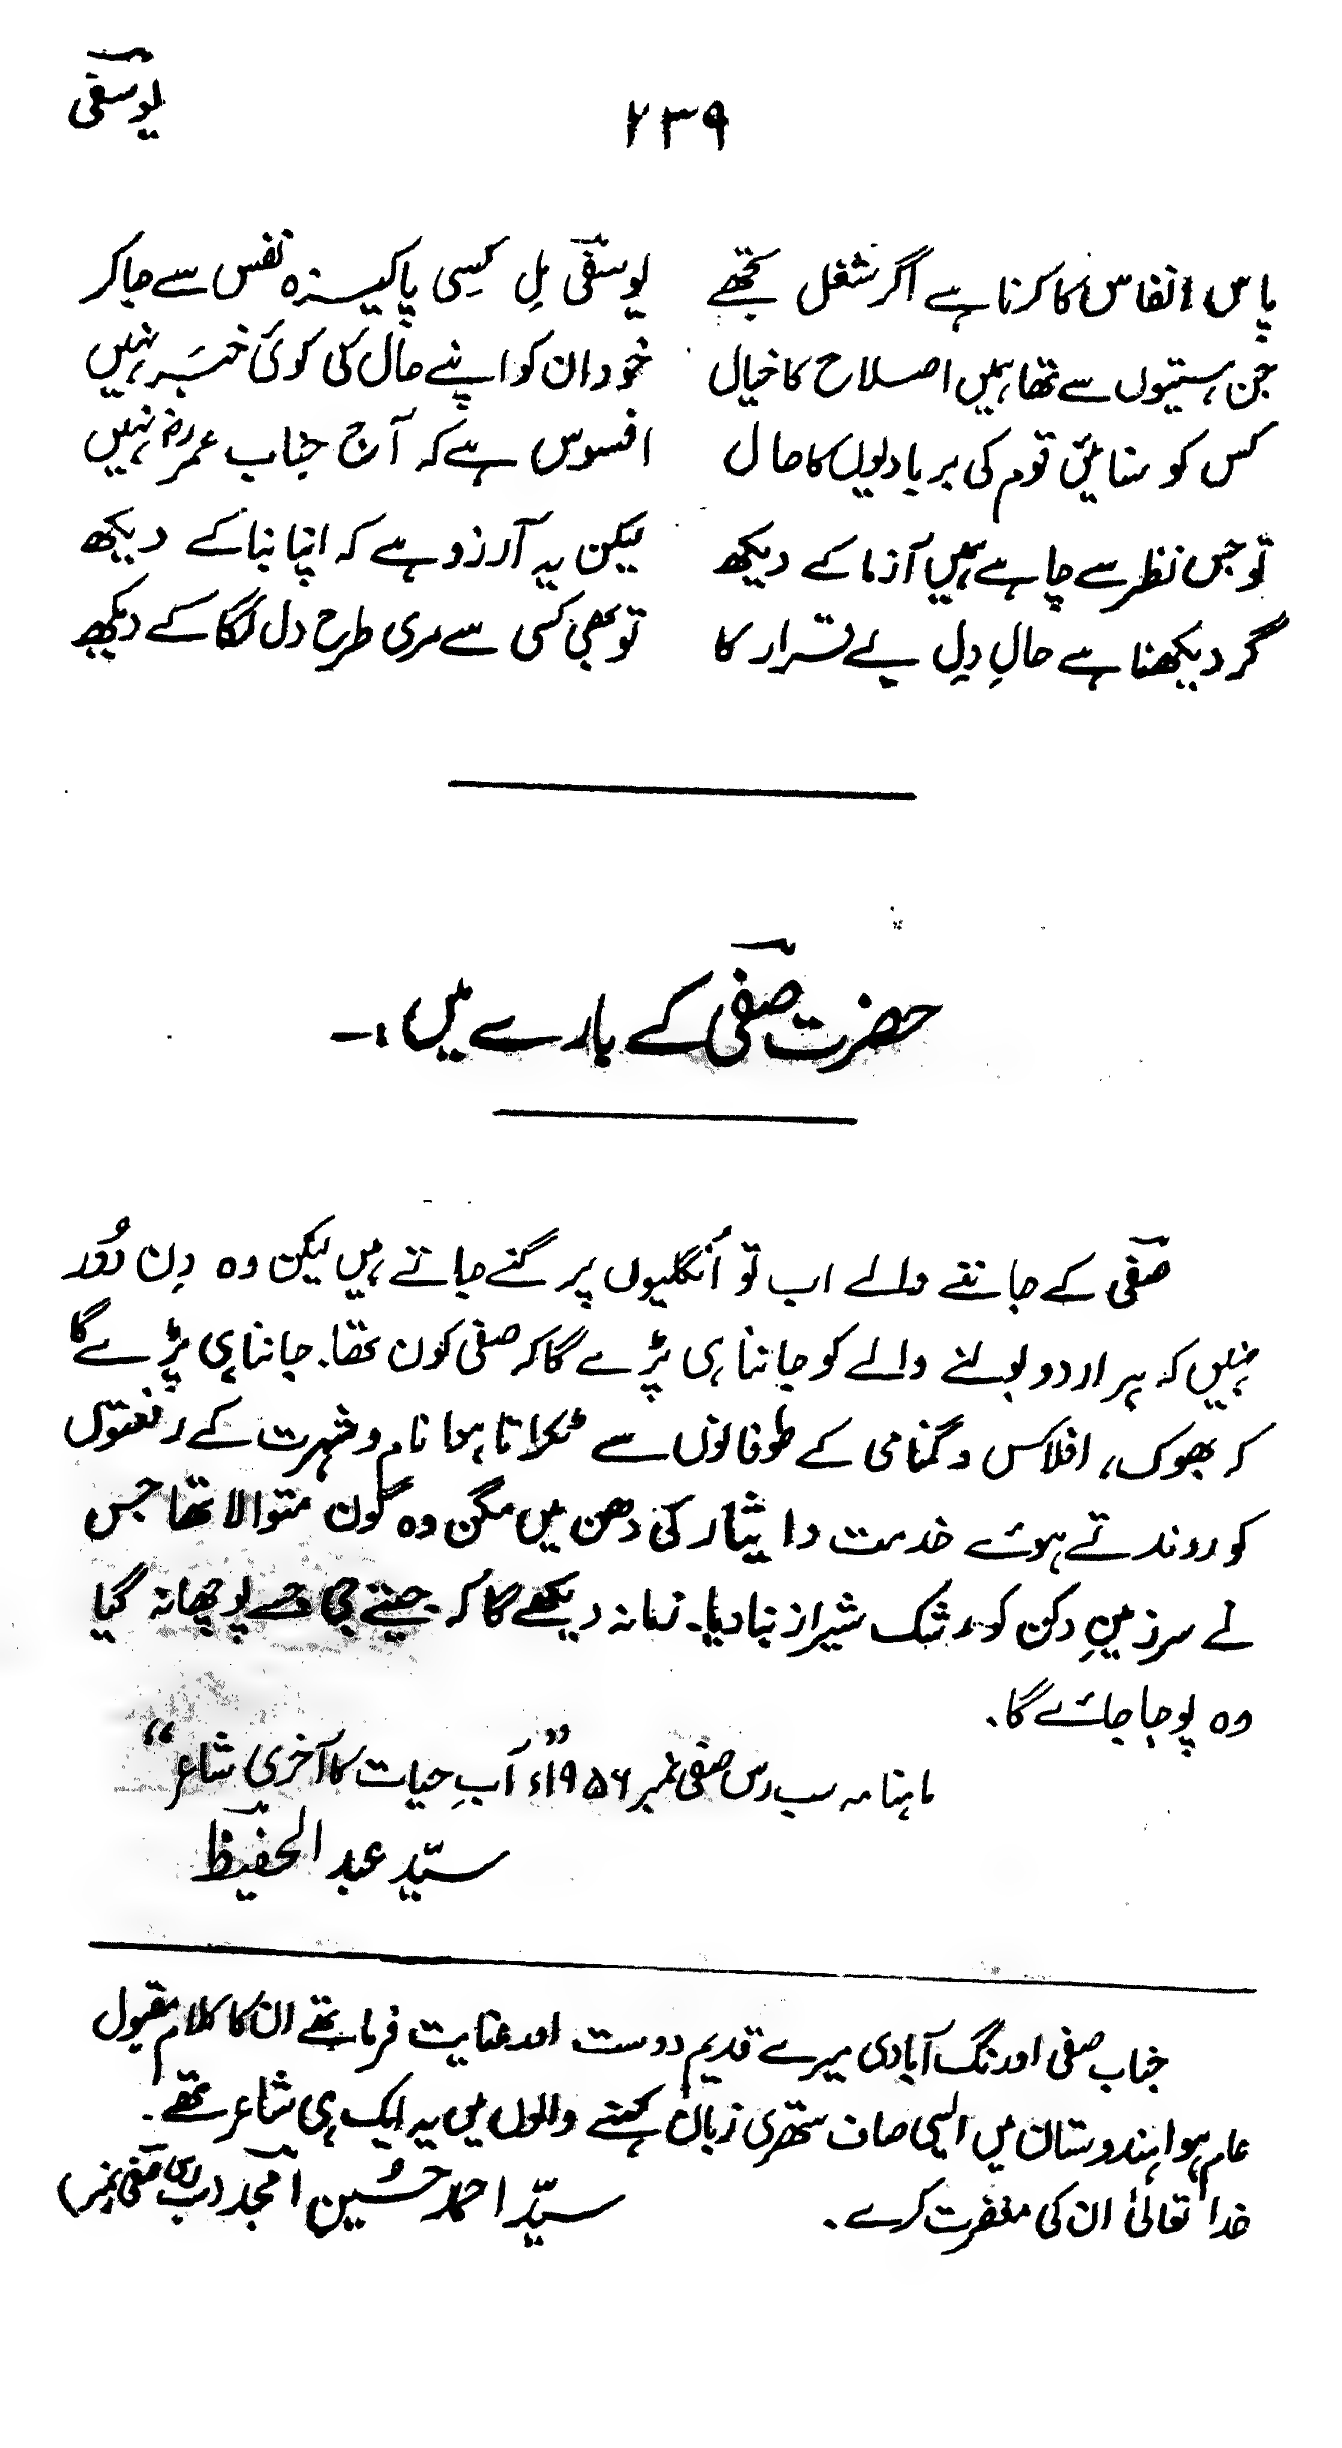 یوسفی
۲۳۹
پاس انفاس کا کرنا ہے اگر شغل تجھے یوسفی مِل کسی پاکیزہ نفس سے جاکر
جن ہستیوں سے تھا ہمیں اصلاح کا خیال خود ان کو اپنے حال کی کوئی خبر نہیں
کس کو سنائیں قوم کی بربادیوں کا حال افسوس ہے کہ آج جناب عمرؓ نہیں
تو جس نظر سے چاہے ہمیں آزما کے دیکھ لیکن یہ آرزو ہے کہ اپنا بنا کے دیکھ
گر دیکھنا ہے حالِ دلِ بے قرار کا تو بھی کسی سے مری طرح دل لگا کے دیکھ
حضرت صفی کے بارے میں :۔
صفی کے جاننے والے اب تو اُنگلیوں پر گنے جاتے ہیں لیکن وہ دِن دُور
نہیں کہ ہر اردو بولنے والے کو جاننا ہی پڑے گا کہ صفی کون تھا۔ جاننا ہی پڑے گا
کہ بھوک، افلاس و گمنامی کے طوفانوں سے ٹکراتا ہوا نام و شہرت کے رفعتوں
کو روندتے ہوئے خدمت و ایثار کی دھن میں مگن وہ کون متوالا تھا جس
نے سرزمینِ دکن کو رشک شیراز بنا دیا۔ زمانہ دیکھے گا کہ جیتے جی جسے پوچھا نہ گیا
وہ پوجا جائے گا۔
ماہنامہ سب رس صفی نمبر ۱۹۵۶ء ”آبِ حیات کا آخری شاعر“
سیّد عبدالحفیظ
جناب صفی اورنگ آبادی میرے قدیم دوست اور عنایت فرما تھے ان کا کلام مقبول
عام ہوا ہندوستان میں ایسی صاف ستھری زبان کہنے والوں میں یہ ایک ہی شاعر تھے۔
خدا تعالیٰ ان کی مغفرت کرے۔ سیّد احمد حسین امجد (سب رس صفی نمبر)